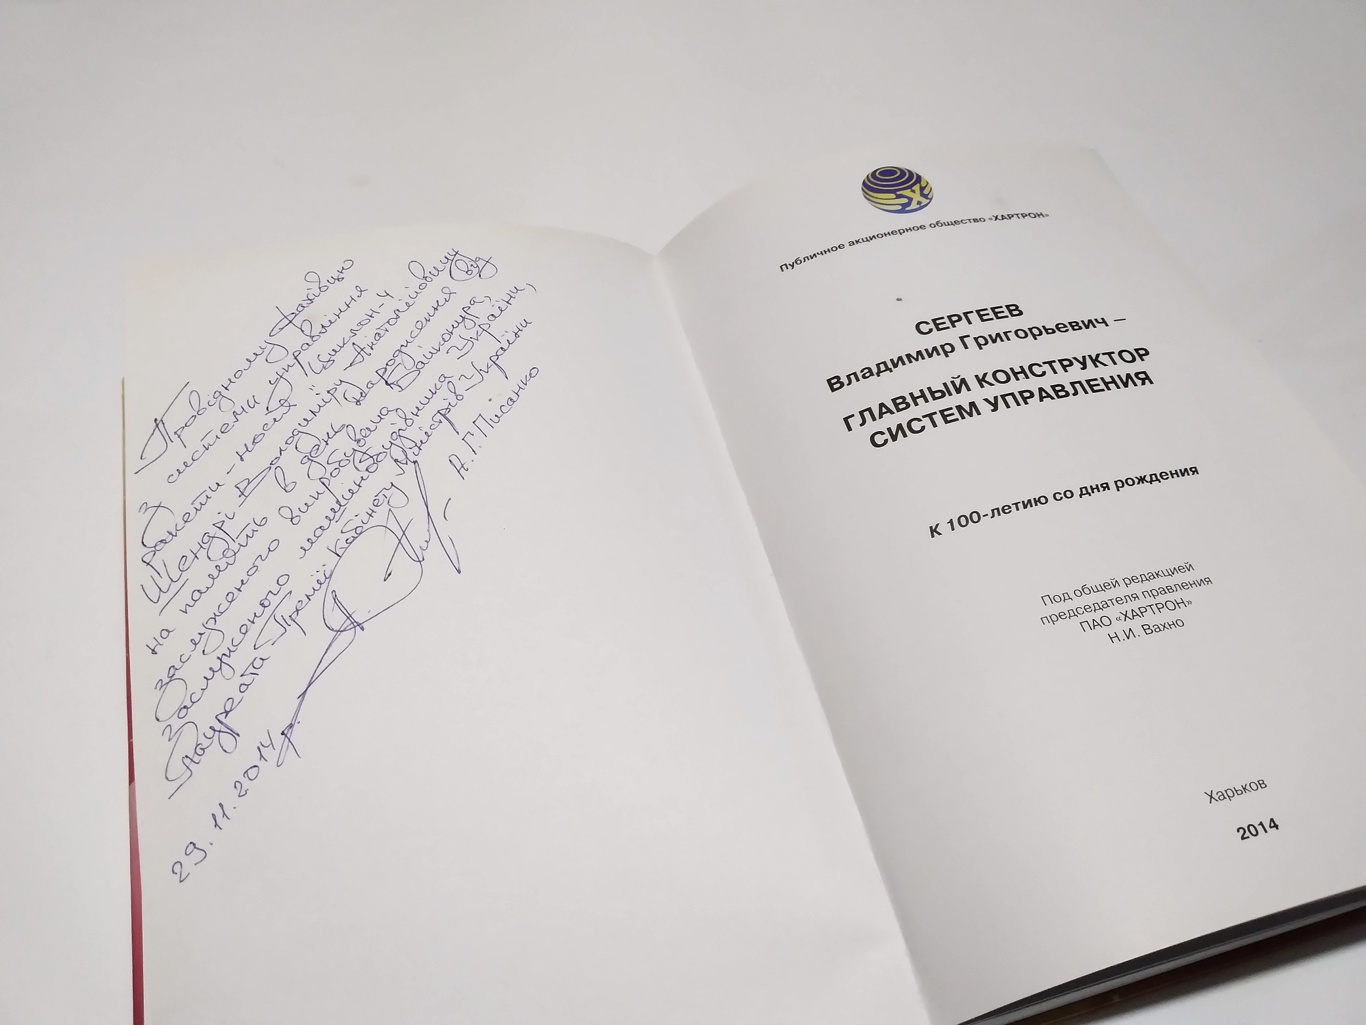 Провідному фахівцю
з системи управління
ракети-носія "Циклон-4
Шендрі Володимиру Анатолійовичу
на пам'ять в день народження від
заслуженого випробувача Байконура,
Заслуженого машинобудівника України,
Лауреата Премії Кабінету Міністрів України
А.Г. Писанко
29.11.2014 р.
Х
Публичное акционерное общество «ХАРТРОН»
СЕРГЕЕВ
Владимир Григорьевич –
ГЛАВНЫЙ КОНСТРУКТОР
СИСТЕМ УПРАВЛЕНИЯ
К 100-летию со дня рождения
Под общей редакцией
председателя правления
ПАО «ХАРТРОН»
Н.И. Вахно
Харьков
2014